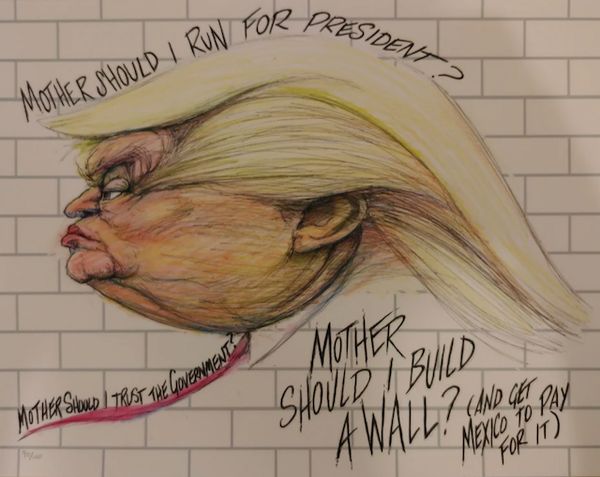 MOTHER SHOULD I RUN FOR PRESIDENT?
MOTHER SHOULD I TRUST THE GOVERNMENT?
MOTHER
SHOULD I BUILD
A WALL? (AND GET
MEXICO TO PAY
FOR IT)